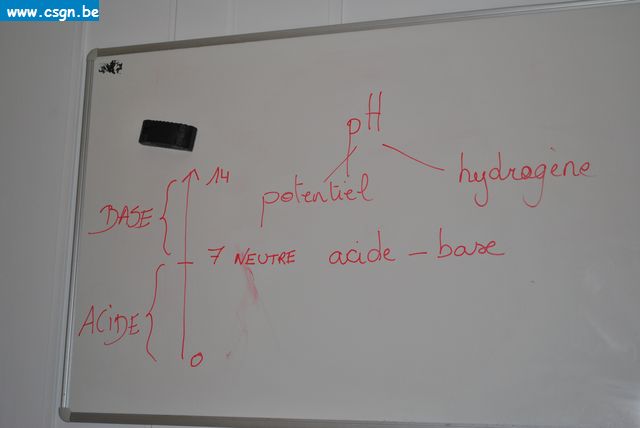 www.csgn.be
pH
potentiel hydrogène
14
BASE
7 NEUTRE acide - base
ACIDE
0